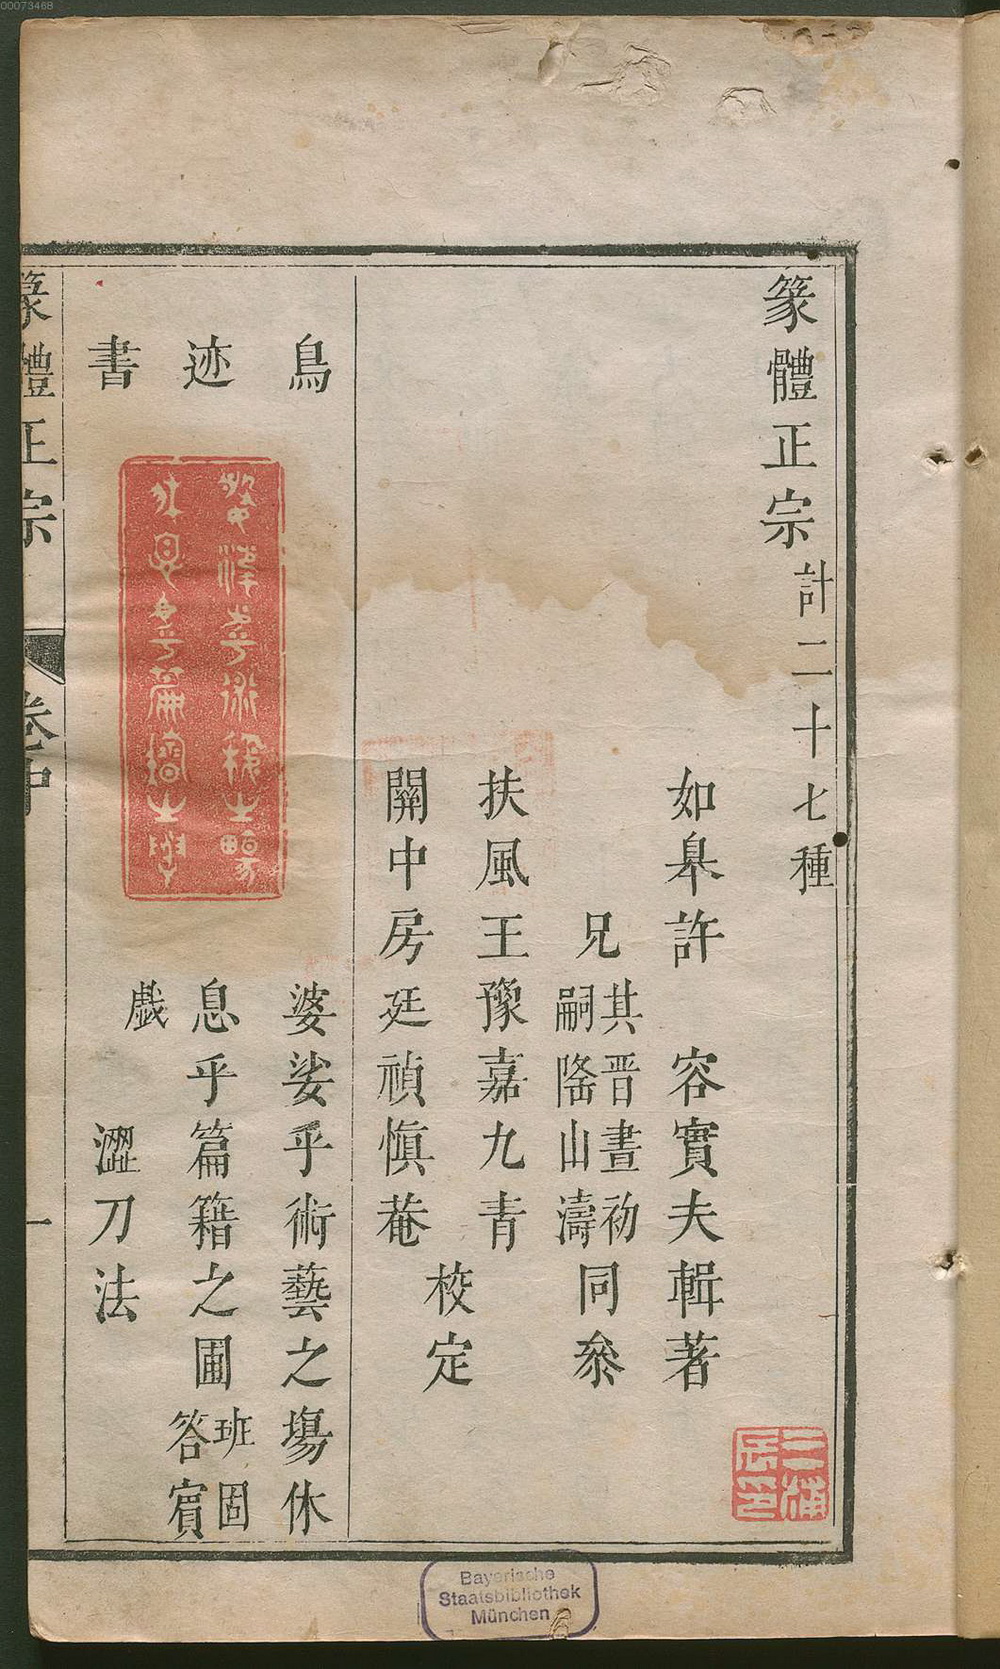 00073468
篆體正宗 計二十七種
如皐許 容實夫輯著
兄 其晋晝初 嗣隆山濤 同叅
扶風王豫嘉九青
關中房廷禎愼菴
校定
鳥迹書
婆娑乎術藝之塲休
息乎篇籍之圃 班固答賓
戲 澀刀法
篆體正宗 卷中 一
Bayerische
Staatsbibliothek
München